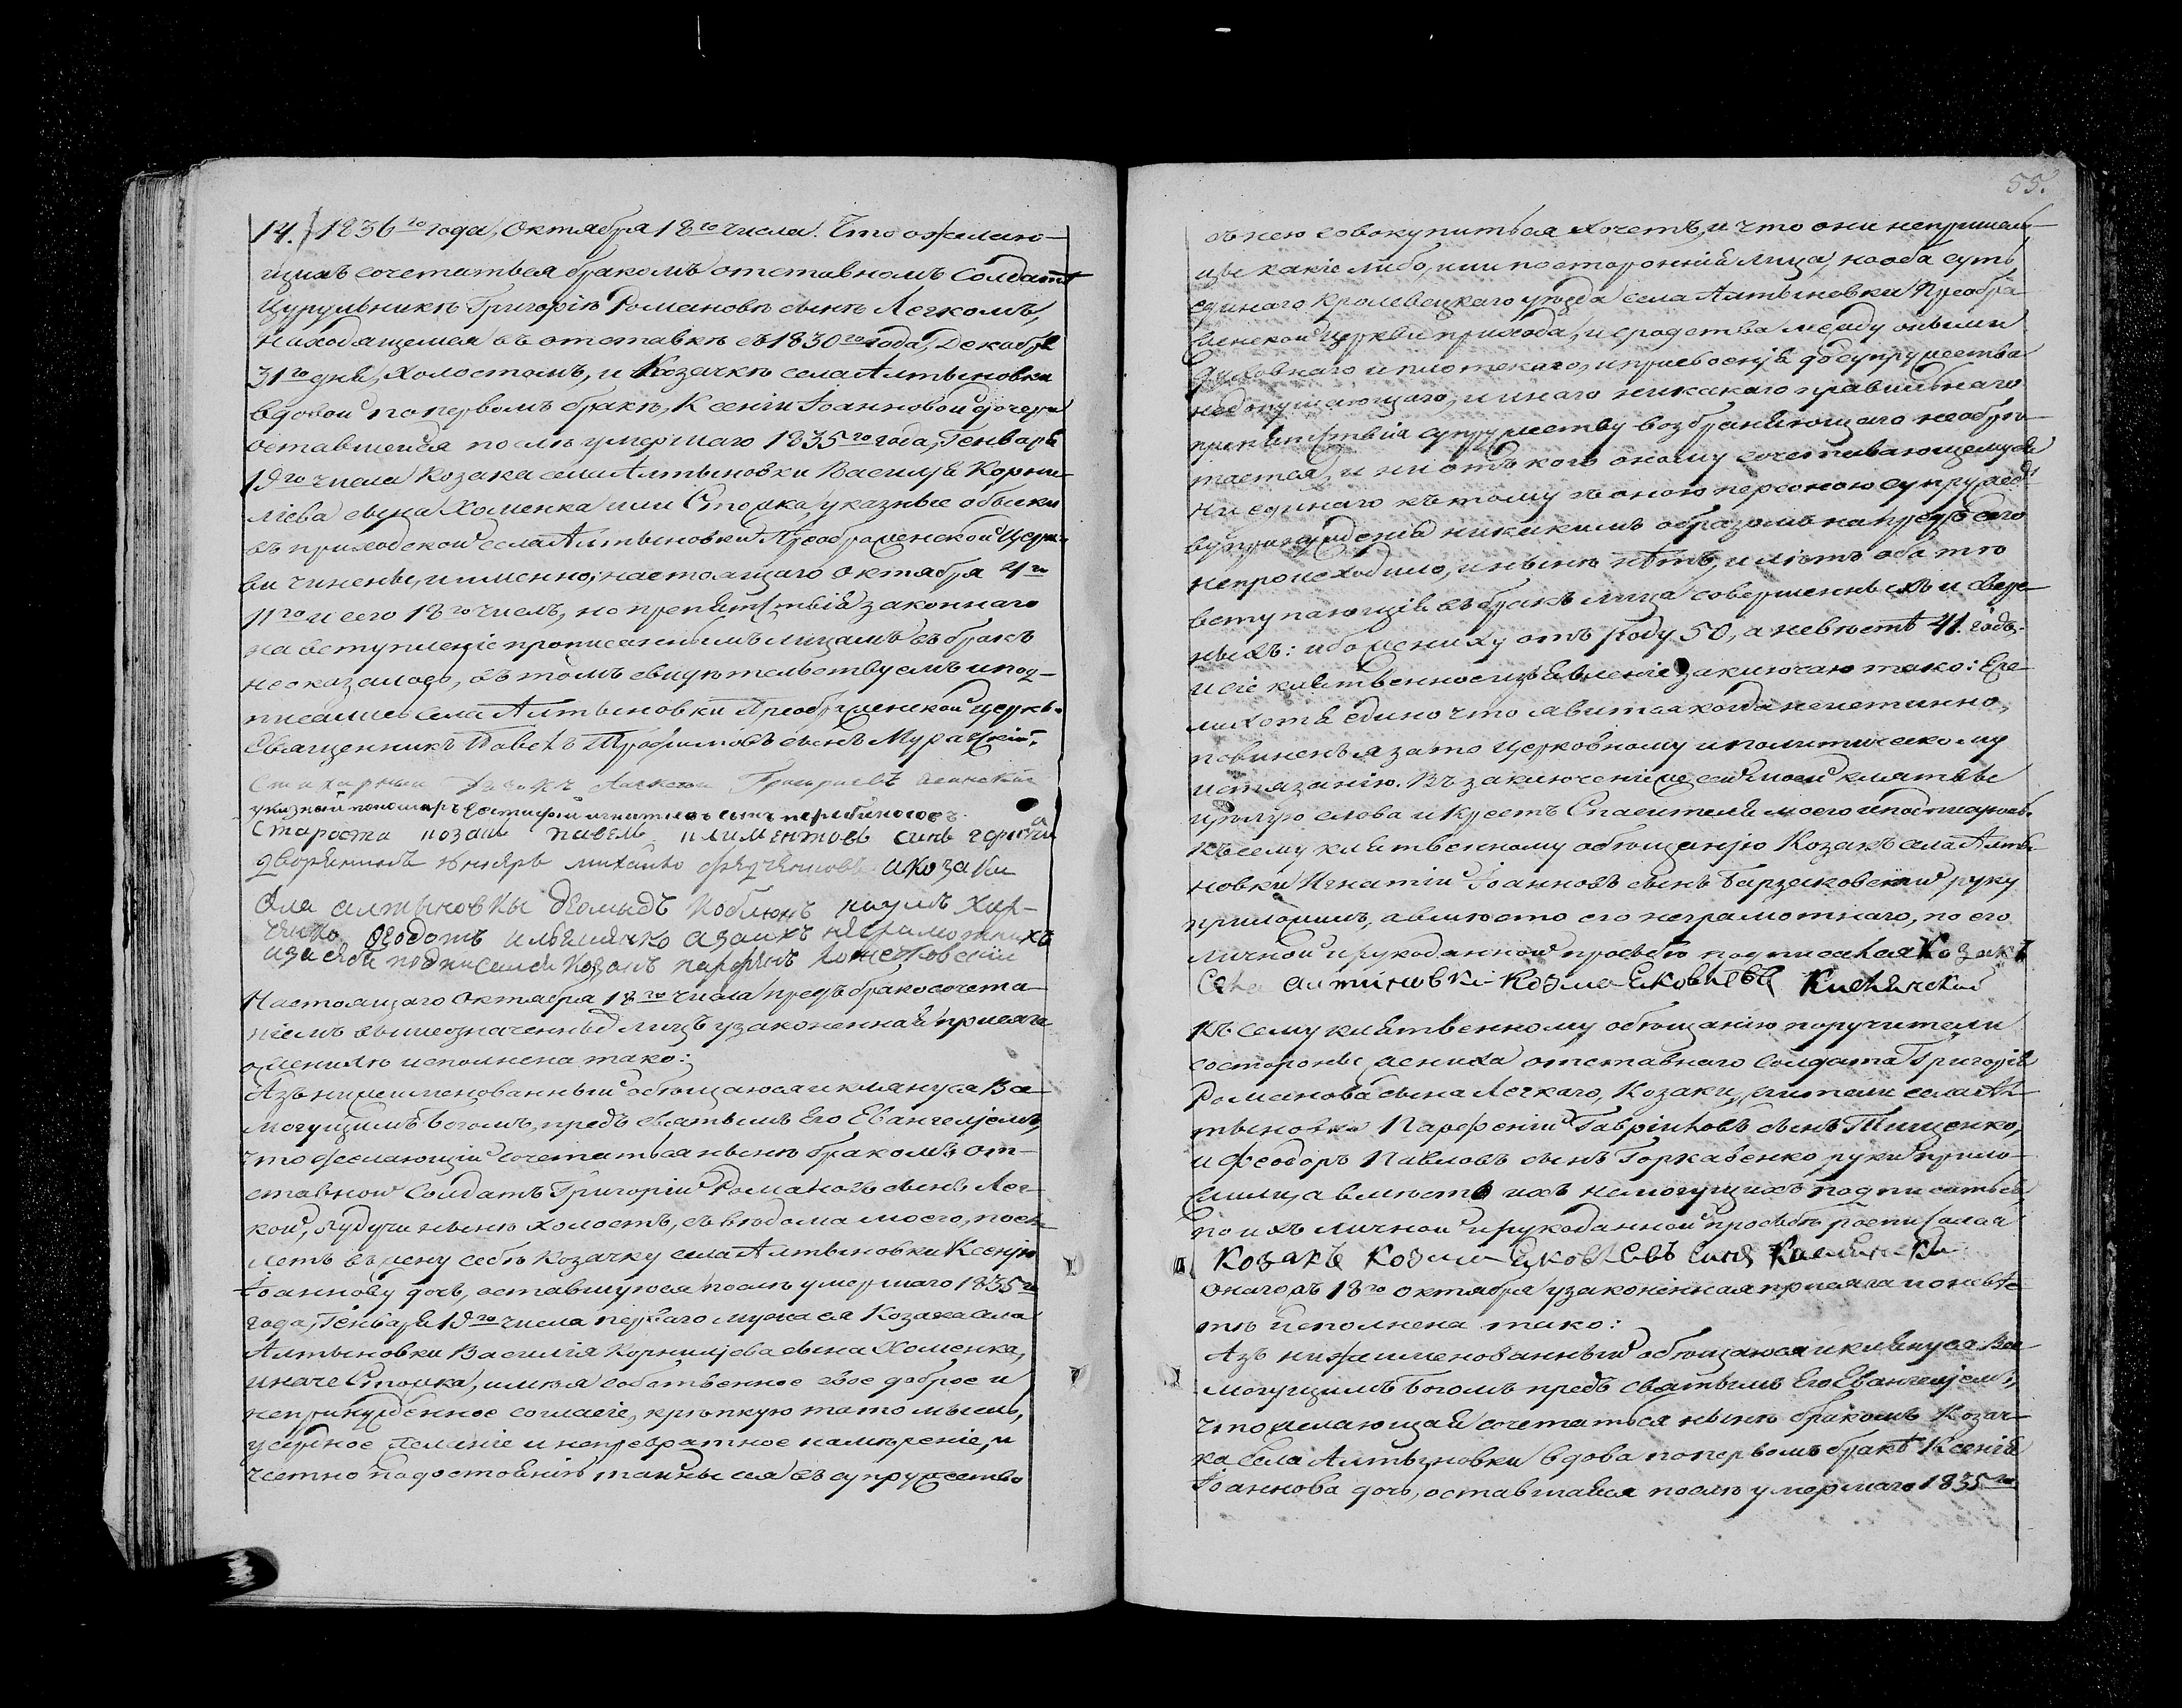 14. 1836го года, Октября 18го числа. Что о желаю-
щихъ сочетаться бракомъ отставномъ Солдатѣ
Цурульникѣ Григоріѣ Романовѣ сынѣ Легкомъ,
находящемся въ отставкѣ съ 1830го года, Декабря
31го дня, холостомъ, и Козачкѣ села Алтыновки
вдовой по первомъ бракѣ, Ксеніи Іоанновой дочери
оставшейся послѣ умершаго 1835го года, Генваря
19го числа Козака села Алтыновки Василія Корни-
ліева сына Хоменка или указные обыски
въ приходской села Алтыновки Преображенской Церк-
ви чинены, и именно; настоящаго Октября 4го
11го и сего 18го числъ, но препятствія законнаго
на вступленіе прописаннымъ лицамъ въ бракъ
неоказалось, въ томъ свидѣтельствуемъ и под-
писались села Алтыновки Преображенской церкви
Священникъ Павелъ Трофимовъ сынъ
Стихарный Алексей Григориевъ
указной пономарь сынъ
Староста козакъ павелъ климентовъ синь
дворянинъ михайло а козаки
села алтыновки наумъ Хар-
ченко, Федотъ а за ихъ неграмотнихъ
и за себя подписался Козакъ парфенъ
Настоящаго Октября 18го числа предъ бракосочета-
ніемъ вышеозначенныхъ лицъ узаконенная присяга
о женихѣ исполнена тако:
Азъ нижеименованный обѣщаюся и клянуся Все-
могущимъ Богомъ, предъ святымъ Его Евангеліемъ,
что желающій сочетаться нынѣ бракомъ от-
ставной Солдатъ Григорій Романовъ сынъ Лег-
кой, будучи нынѣ холостъ, съ вѣдома моего, поем-
летъ въ жену себѣ Козачку села Алтыновки Ксенію
Іоаннову дочь, оставшуюся послѣ умершаго 1835го
года, Генваря 19го числа перваго мужа ея Козака села
Алтыновки Василія Корниліева сына Хоменка,
иначе имѣя собственное свое доброе и
непринужденное согласіе, крѣпкую на то мысль,
усердное желаніе и непревратное намѣреніе, и
честно по достоянію тайны сея въ супружество
55.
съ нею совокупиться хочетъ, и что они непришель-
цы какіе либо, или посторонній лица, но оба суть
единаго Кролевецкаго уѣзда села Алтыновки Преобра-
женской Церкви прихода, и сродства между оными
духовнаго и плотскаго, и присвоенія до супружества
недопущающаго, и инаго никакаго правильнаго
препятствія супружеству возбраняющаго необрѣ-
тается, и ни отъ кого оному сочетавающемуся
ни единаго къ тому съ оною персоною супружест-
ву принужденія никакимъ образомъ напредъ сего
непроисходило, и нынѣ нѣтъ, и лѣтъ оба тѣ
вступающія въ бракъ лица совершенныхъ и
ныхъ: ибо жениху отъ роду 50, а невѣстѣ 41. годъ.
И сіе клятвенное изъявленіе заключаю тако: Еже-
ли хотя едино что явится когда неистинно,
повиненъ я за то церковному и политическому
истязанію. Въ заключеніи же сей моей клятвы
цѣлую слова и Крестъ Спасителя моего и подписуюсь.
Къ сему клятвенному обѣщанію Козакъ села Алты-
новки Игнатій Іоанновъ сынъ руку
приложилъ, а вмѣсто его неграмотнаго, по его
личной и рукоданной просьбѣ подписался Козакъ
Села алтиновки Козма Яковлевъ
Къ сему клятвенному обѣщанію поручители
со стороны жениха отставнаго Солдата Григорія
Романова сына Легкаго, Козаки, жители села Ал-
тыновки Парфеній Гавріиловъ сынъ Тищенко,
и Феодоръ Павловъ сынъ Горкавенко руки прило-
жили, а вмѣсто ихъ немогущихъ подписаться
по ихъ личной и рукоданной просьбѣ росписался
Козакъ Козма Яковлевъ синъ
Онагожъ 18го октября узаконенная присяга и о невѣс-
тѣ исполнена тако:
Азъ нижеименованный обѣщаюся и клянуся Все-
могущимъ Богомъ предъ святымъ Его Евангеліемъ,
что желающая сочетаться нынѣ бракомъ Козач-
ка села Алтыновки вдова по первомъ бракѣ Ксенія
Іоаннова дочь, оставшаяся послѣ умершаго 1835го